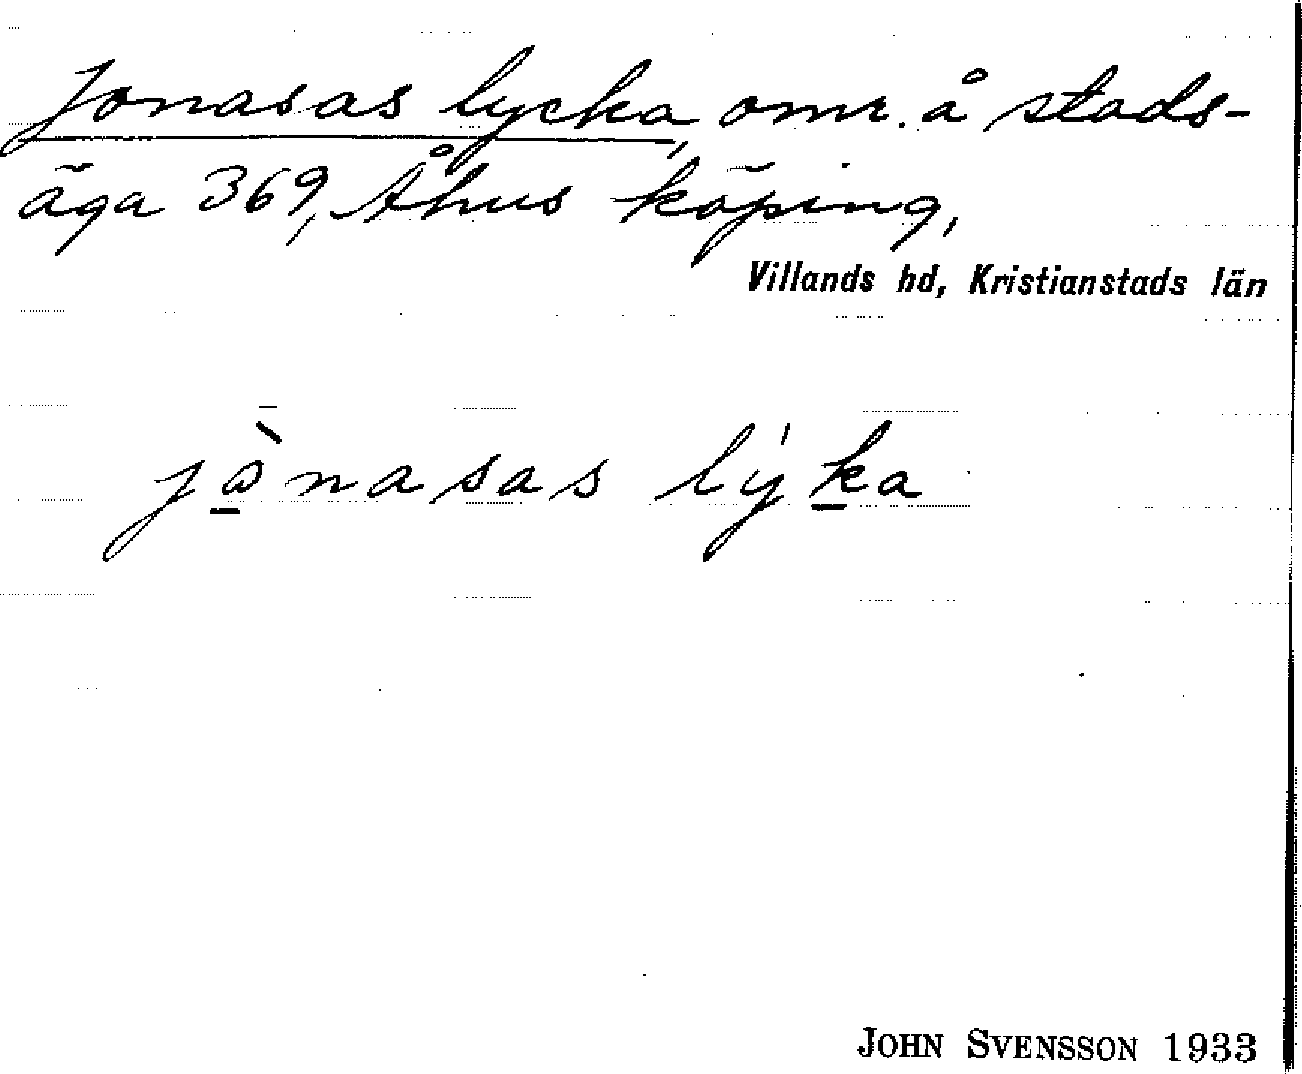 Jonasas lycka, omr. å stads-
äga 369, Åhus köping,
Villands hd, Kristianstads län
jὼ̱nasas lýḵa
JOHN SVENSSON 1933